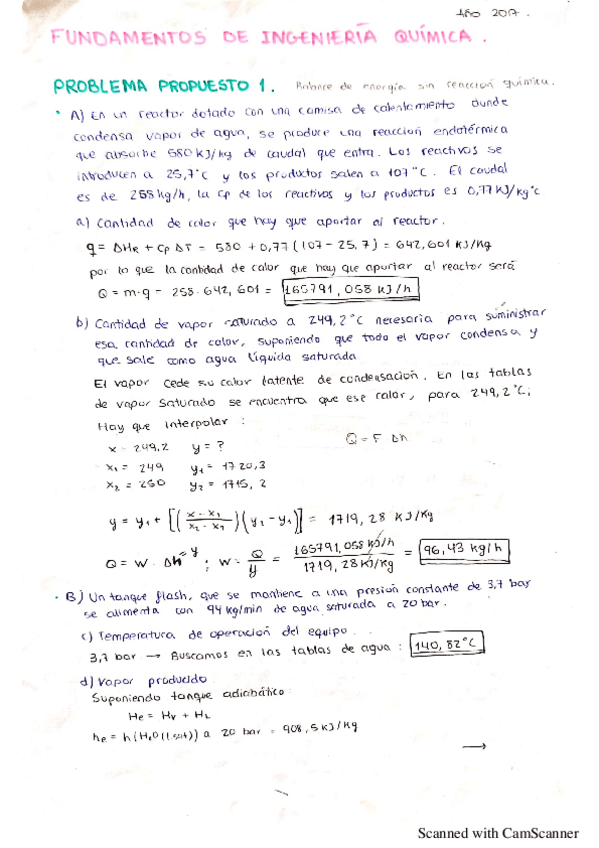 Año 2017.
FUNDAMENTOS DE INGENIERÍA QUÍMICA.
PROBLEMA PROPUESTO 1. Balance de energía sin reacción química.
· A) En un reactor dotado con una camisa de calentamiento donde
condensa vapor de agua, se produce una reacción endotérmica
que absorbe 580 kJ/kg de caudal que entra. Los reactivos se
introducen a 25,7°C y los productos salen a 107°C. El caudal
es de 258 kg/h, la Cp de los reactivos y los productos es 0,77 kJ/kg°C
a) Cantidad de calor que hay que aportar al reactor.
q = ΔHR + Cp ΔT = 580 + 0,77 (107 - 25,7) = 642,601 KJ/Kg
por lo que la cantidad de calor que hay que aportar al reactor será
Q = m·q = 258·642,601 = 165791,058 KJ/h
b) Cantidad de vapor saturado a 249,2°C necesaria para suministrar
esa cantidad de calor, suponiendo que todo el vapor condensa y
que sale como agua líquida saturada
El vapor cede su calor latente de condensación. En las tablas
de vapor saturado se encuentra que ese calor, para 249,2°C;
Hay que interpolar :
x = 249,2 y = ? Q = F Δh
x₁ = 249 y₁ = 1720,3
x₂ = 250 y₂ = 1715,2
y = y₁ + [((x - x₁)/(x₂ - x₁))(y₂ - y₁)] = 1719,28 KJ/Kg
Q = W · Δh = y ; W = Q/y = 165791,058 KJ/h / 1719,28 KJ/Kg = 96,43 kg/h
· B) Un tanque flash, que se mantiene a una presión constante de 3,7 bar
se alimenta con 94 kg/min de agua saturada a 20 bar.
c) Temperatura de operación del equipo.
3,7 bar → Buscamos en las tablas de agua : 140,82°C
d) Vapor producido
Suponiendo tanque adiabático
He = Hv + HL
he = h(H₂O(l.sat)) a 20 bar = 908,5 KJ/Kg
→
Scanned with CamScanner